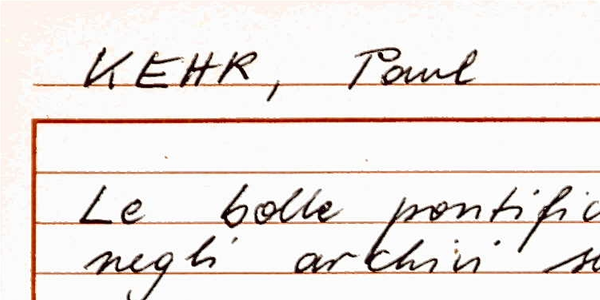 KEHR, Paul
Le bolle pontific
negli archivi